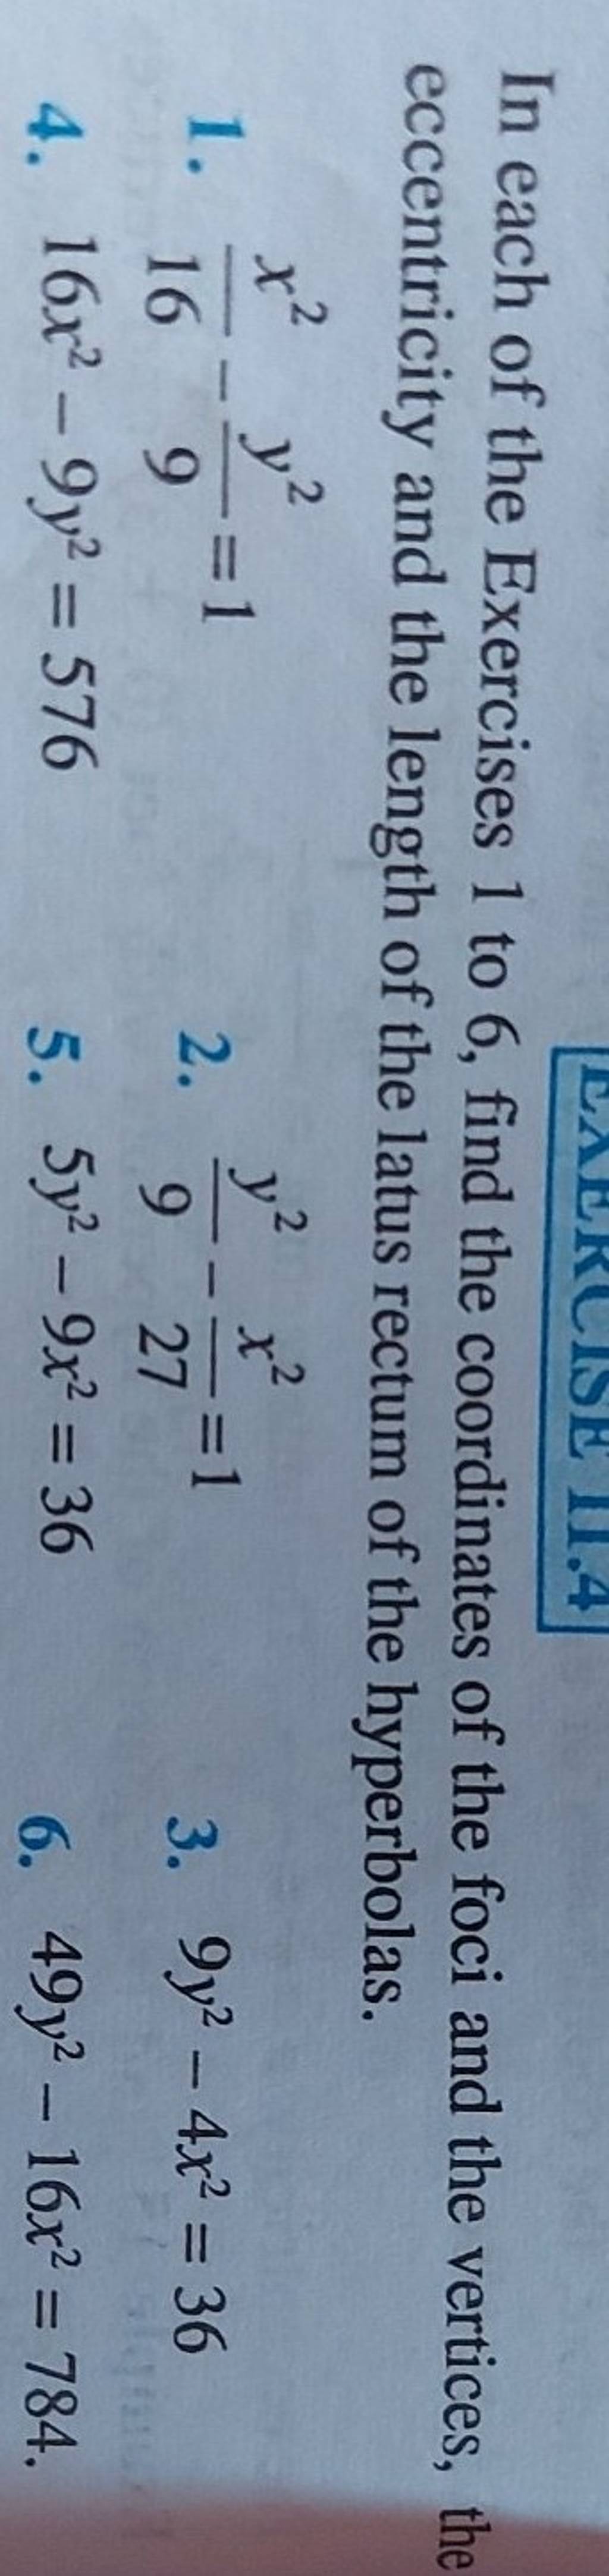 EXERCISE 11.4
In each of the Exercises 1 to 6, find the coordinates of the foci and the vertices, the
eccentricity and the length of the latus rectum of the hyperbolas.
1. x²/16 − y²/9 = 1 2. y²/9 − x²/27 = 1 3. 9y² − 4x² = 36
4. 16x² − 9y² = 576 5. 5y² − 9x² = 36 6. 49y² − 16x² = 784.